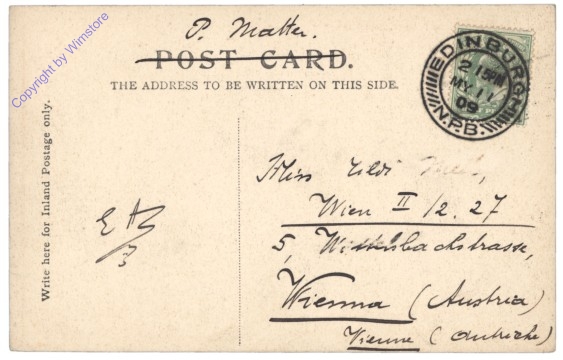 Copyright by Wimstore
P. Matter.
POST CARD.
THE ADDRESS TO BE WRITTEN ON THIS SIDE.
EDINBURGH
2 15PM
MY 11
09
N.P.B.
Write here for Inland Postage only.
Miss
Wien II/2. 27
5,
Vienna (Austria)
Vienne (Autriche)